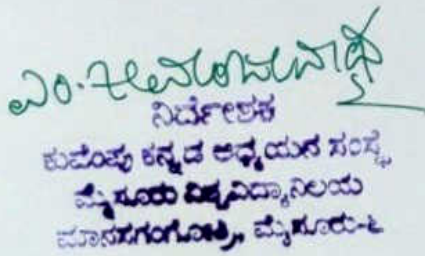 ಎಂ.
ನಿರ್ದೇಶಕ
ಕುವೆಂಪು ಕನ್ನಡ ಅಧ್ಯಯನ ಸಂಸ್ಥೆ,
ಮೈಸೂರು ವಿಶ್ವವಿದ್ಯಾನಿಲಯ
ಮಾನಸಗಂಗೋತ್ರಿ, ಮೈಸೂರು-೬